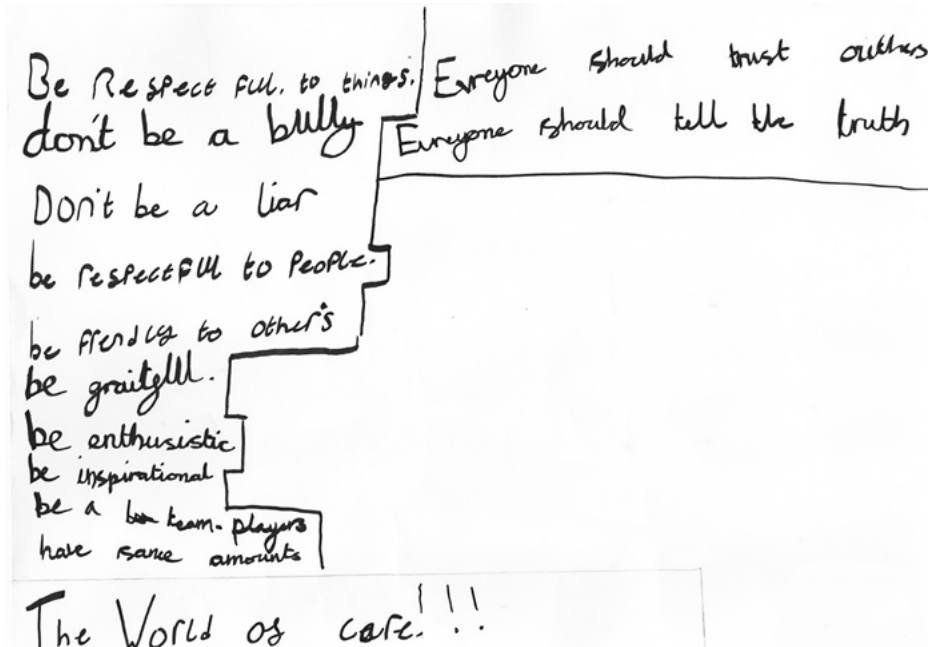 Be Respect ful. to things.
don't be a bully
Don't be a liar
be respectful to people.
be frendly to other's
be graitful.
be enthusistic
be inspirational
be a team. players
have same amounts
Evreyone should trust outhers
Evreyone should tell the truth
The World of care!!!